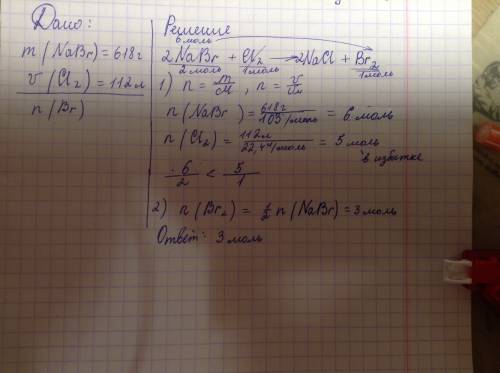 Дано:
m (NaBr) = 618 г
V (Cl₂) = 112 л
n (Br)
Решение
6 моль
2NaBr + Cl₂ → 2NaCl + Br₂
2 моль 1 моль 1 моль
1) n = m/M, n = V/Vм
n (NaBr) = 618 г / 103 г/моль = 6 моль
n (Cl₂) = 112 л / 22,4 л/моль = 5 моль
в избытке
6/2 < 5/1
2) n (Br₂) = 1/2 n (NaBr) = 3 моль
Ответ: 3 моль